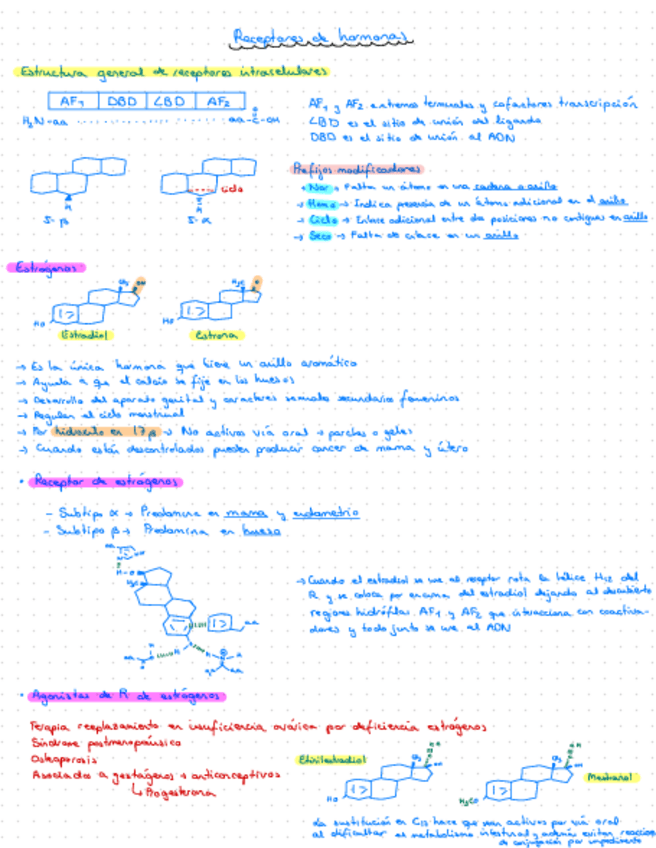 Receptores de hormonas
Estructura general de receptores intracelulares
AF₁ DBD LBD AF₂
H₂N-aa ... aa-C-OH
O
AF₁ y AF₂ extremos terminales y cofactores transcripción
LBD es el sitio de unión del ligando
DBD es el sitio de unión al ADN
Prefijos modificadores
→ Nor → Falta un átomo en una cadena o anillo
→ Homo → Indica presencia de un átomo adicional en el anillo
→ Ciclo → Enlace adicional entre dos posiciones no contiguas en anillo
→ Seco → Falta de enlace en un anillo
Ciclo
H
H
5-β
5-α
Estrógenos
CH₃ OH
H₃C O
HO
HO
Estradiol
Estrona
→ Es la única hormona que tiene un anillo aromático
→ Ayuda a que el calcio se fije en los huesos
→ Desarrollo del aparato genital y caracteres sexuales secundarios femeninos
→ Regulan el ciclo menstrual
→ Por hidroxilo en 17β → No activos vía oral → parches o geles
→ Cuando están descontrolados pueden producir cancer de mama y útero
• Receptor de estrógenos
- Subtipo α → Predomina en mama y endometrio
- Subtipo β → Predomina en hueso
→ Cuando el estradiol se une al receptor rota la hélice H₁₂ del
R y se coloca por encima del estradiol dejando al descubierto
regiones hidrófilas AF₁ y AF₂ que interacciona con coactiva-
dores y todo junto se une al ADN
• Agonistas de R de estrógenos
Terapia reemplazamiento en insuficiencia ovárica por deficiencia estrógenos
Síndrome postmenopáusico
Osteoporosis
Asociados a gestágenos → anticonceptivos
↳ Progesterona
Etinilestradiol
Mestranol
HO
H₃CO
La sustitución en C₁₇ hace que sean activos por vía oral
al dificultar el metabolismo intestinal y además evitan reacciones
de conjugación por impedimento